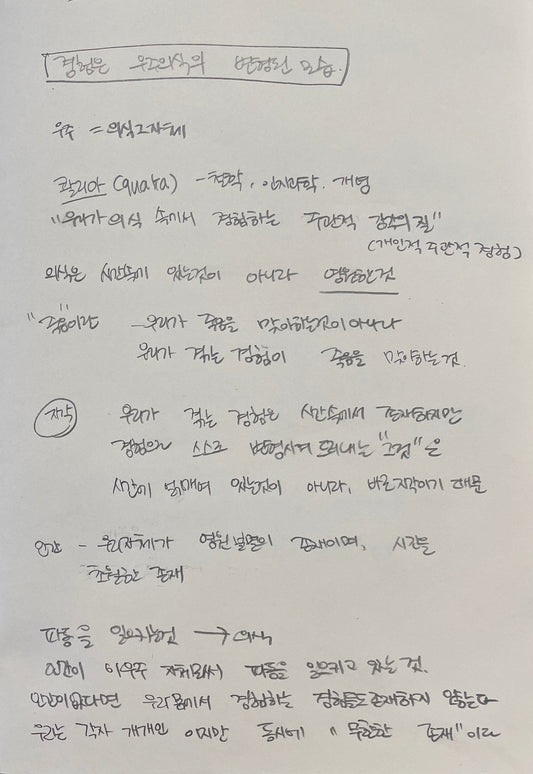 경험은 우주의식의 변형된 모습.
우주 = 의식 그 자체
콸리아 (quaria) - 철학, 인지과학, 개념
"우리가 의식 속에서 경험하는 주관적 감각의 질"
(개인적 주관적 경험)
의식은 시간속에 있는것이 아니라 영원한것
"죽음"이란 - 우리가 죽음을 맞이하는것이 아니라
우리가 겪는 경험이 죽음을 맞이하는 것.
지각 우리가 겪는 경험은 시간속에서 존재하지만
경험으로 스스로 변형시켜 드러내는 "그것"은
시간에 얽매여 있는것이 아니라, 바로 지각이기 때문
인간 - 우리자체가 영원불멸의 존재이며, 시간을
초월한 존재
파동을 일으키는것 → 의식
인간이 이우주 자체로써 파동을 일으키고 있는 것.
인간이 없다면 우리 몸에서 경험하는 경험들도 존재하지 않는다
우리는 각자 개개인 이지만 동시에 "무한한 존재" 이다